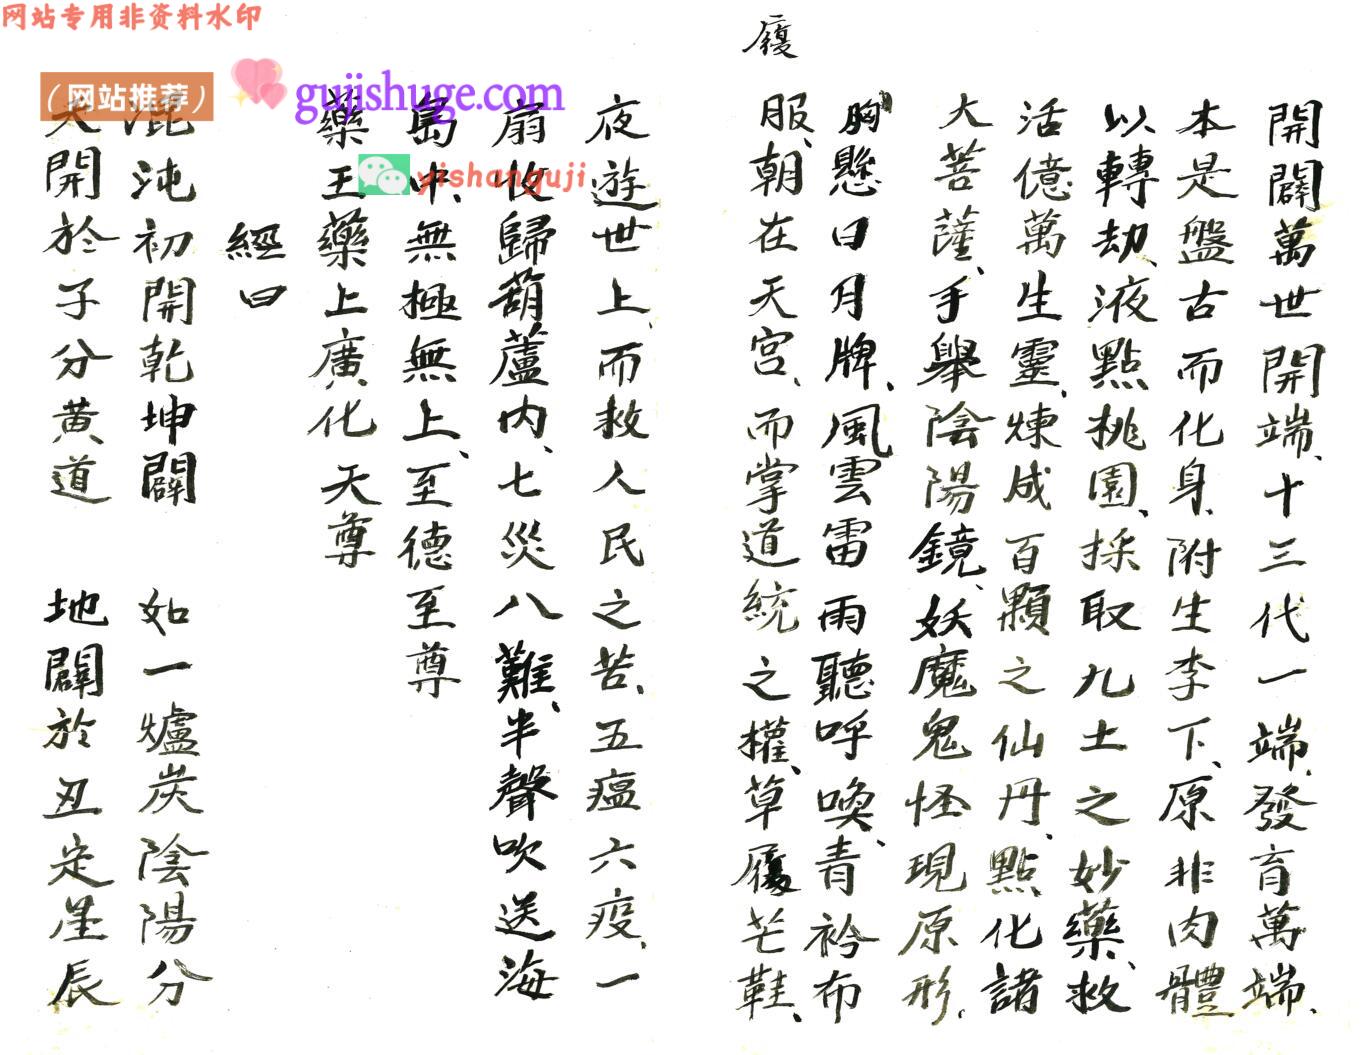 网站专用非资料水印
（网站推荐）
gujishuge.com
yishanguji
履
開闢萬世開端、十三代一端、發育萬端、
本是盤古而化身、附生李下、原非肉體
以轉劫、液點桃園、採取九土之妙藥、救
活億萬生靈、煉成百顆之仙丹、點化諸
大菩薩、手舉陰陽鏡、妖魔鬼怪現原形、
胸懸日月牌、風雲雷雨聽呼喚、青衿布
服、朝在天宮、而掌道統之權、草履芒鞋、
夜遊世上、而救人民之苦、五瘟六疫、一
扇收歸葫蘆内、七災八難、半聲吹送海
島中、無極無上、至德至尊
藥王藥上廣化天尊
經曰
混沌初開乾坤闢　如一爐炭陰陽分
天開於子分黃道　地闢於丑定星辰